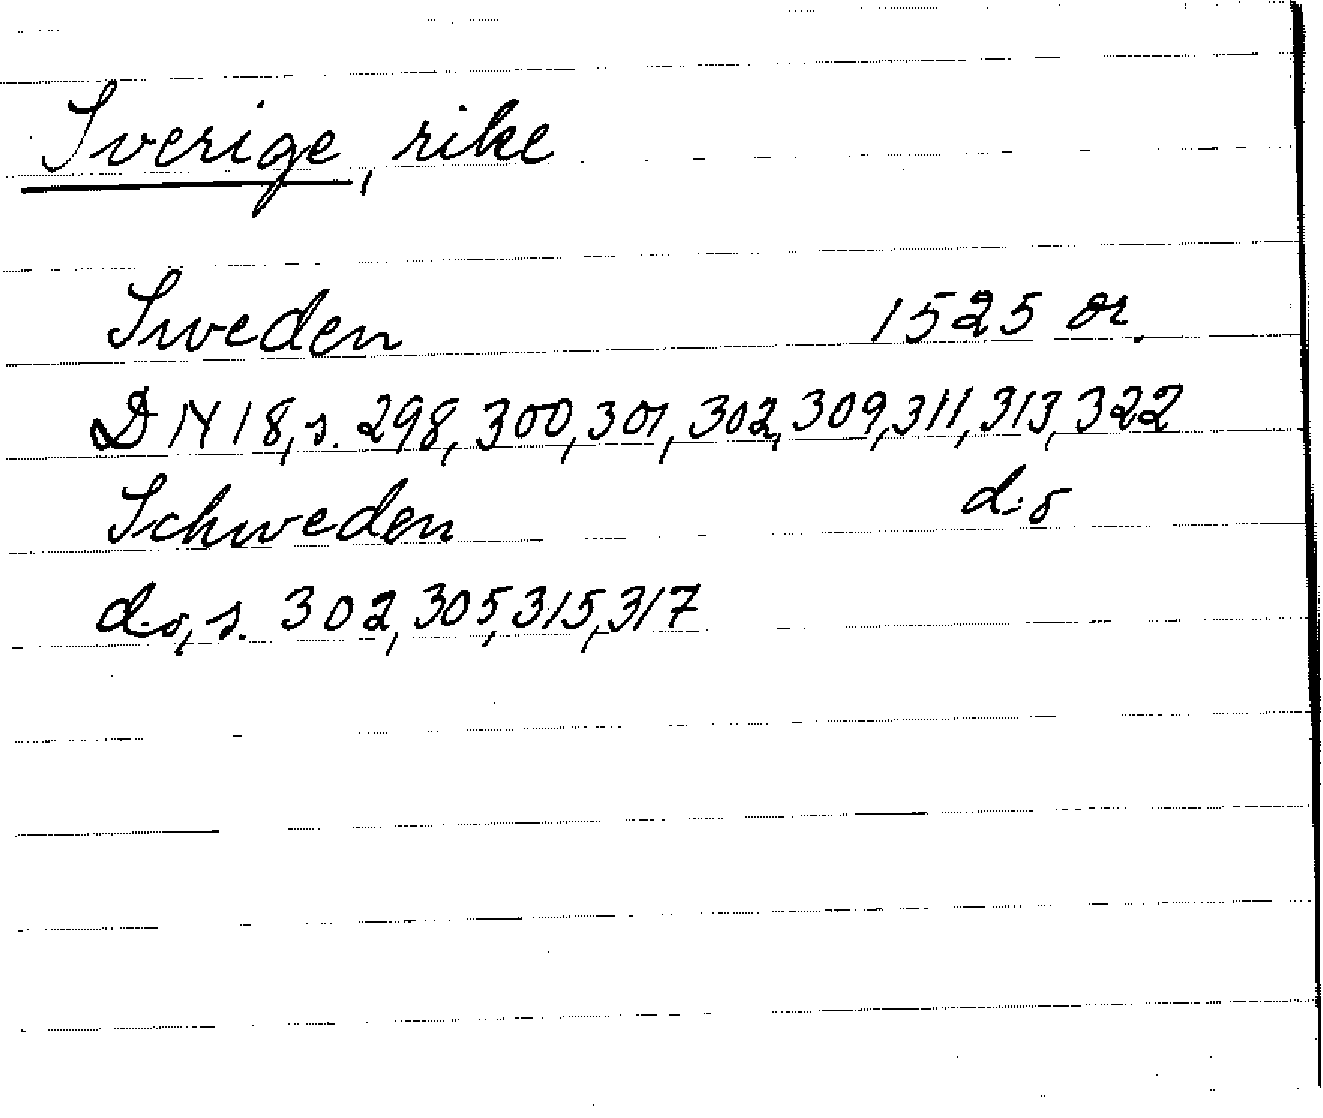 Sverige, rike
Sweden 1525 or.
DN 18, s. 298, 300, 301, 302, 309, 311, 313, 322
Schweden d:o
d:o, s. 302, 305, 315, 317